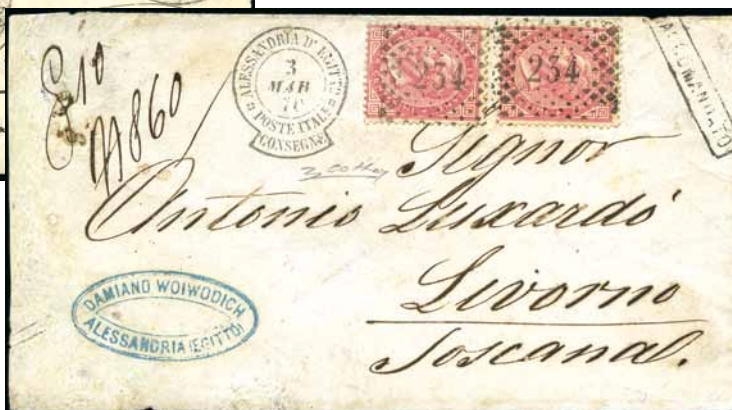 ALESSANDRIA D'EGITTO
3
MAR
POSTE ITALIANE
CONSEGNE
234
234
RACCOMANDATO
860
Signor
Antonio Luxardo
Livorno
Toscana.
DAMIANO WOIWODICH
ALESSANDRIA (EGITTO)